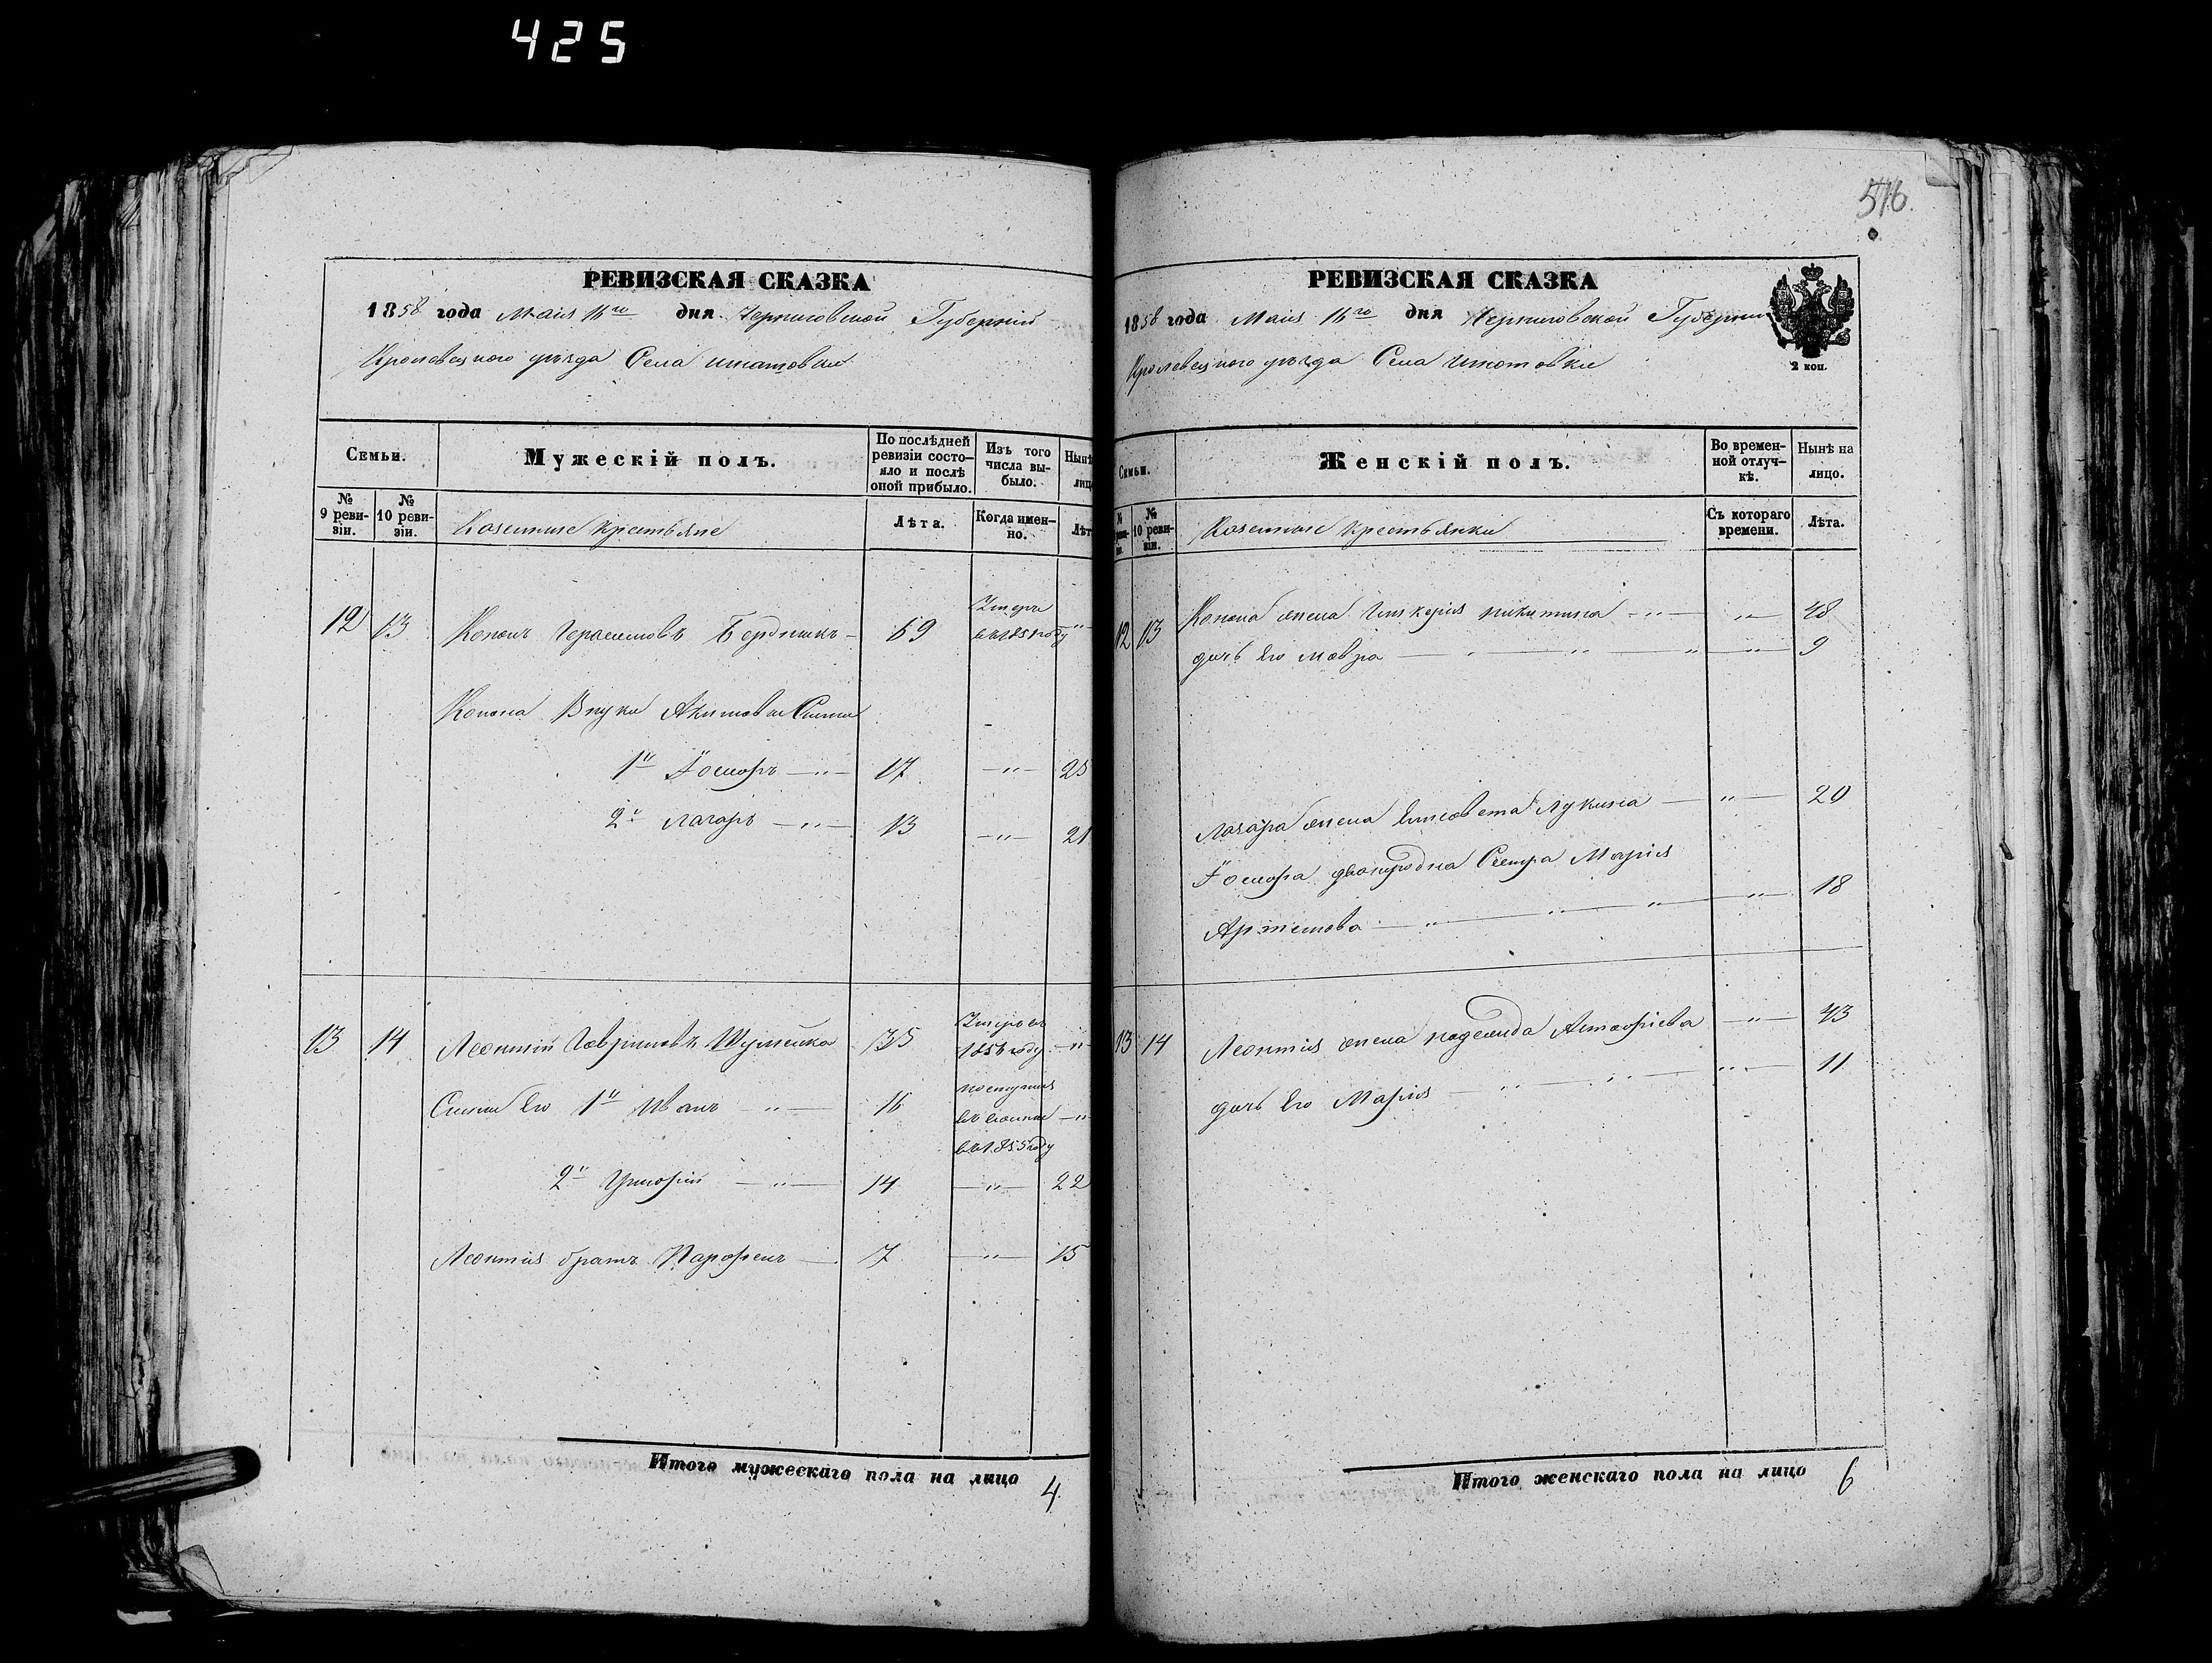 425
516.
РЕВИЗСКАЯ СКАЗКА
1858 года Маія 16го дня Черниговской Губерніи
Кролевецкого уѣзда Села
Семьи.
Мужескій полъ.
По послѣдней ревизіи состо-
яло и послѣ
оной прибыло.
Изъ того
числа вы-
было.
Нынѣ
лиц
№
9 реви-
зіи.
№
10 реви-
зіи.
Казенные крестьяне
Лѣта.
Когда имен-
но.
Лѣт
12 13 Кононъ Герасимовъ Бердникъ 69 Умеръ
въ 1851 году "
Конона Внуки Акимовы Сыны
1й 17 — " — 25
2й Лазарь — " — 13 — " — 21
13 14 Леонтій Гавриловъ Шулешка 35 Умеръ въ
185 году — "
Сыны Его 1й Иванъ — " — 16 поступилъ
въ — "
въ 1855 году
2й Григорій — " — 14 — " — 22
Леонтія братъ Парфенъ — 7 — " — 15
Итого мужескаго пола на лицо 4.
РЕВИЗСКАЯ СКАЗКА
1858 года Маія 16го дня Черниговской Губерніи
Кролевецкого уѣзда Села
2 коп.
Семьи.
Женскій полъ.
Во времен-
ной отлуч-
кѣ.
Нынѣ на
лицо.
№
№
10 реви-
зіи.
Казенные крестьянки
Съ котораго
времени.
Лѣта.
12 13 Конона жена Гликерія Никитина — " — " — 48
дочь Его Мавра — " — " — " — 9
Лазаря жена Елисавета Лукина — " — 20
двоюродна Сестра Марія
Артемова — " — " — " — " — 18
13 14 Леонтія жена — " — 43
дочь Его Марія — " — " — " — 11
Итого женскаго пола на лицо 6